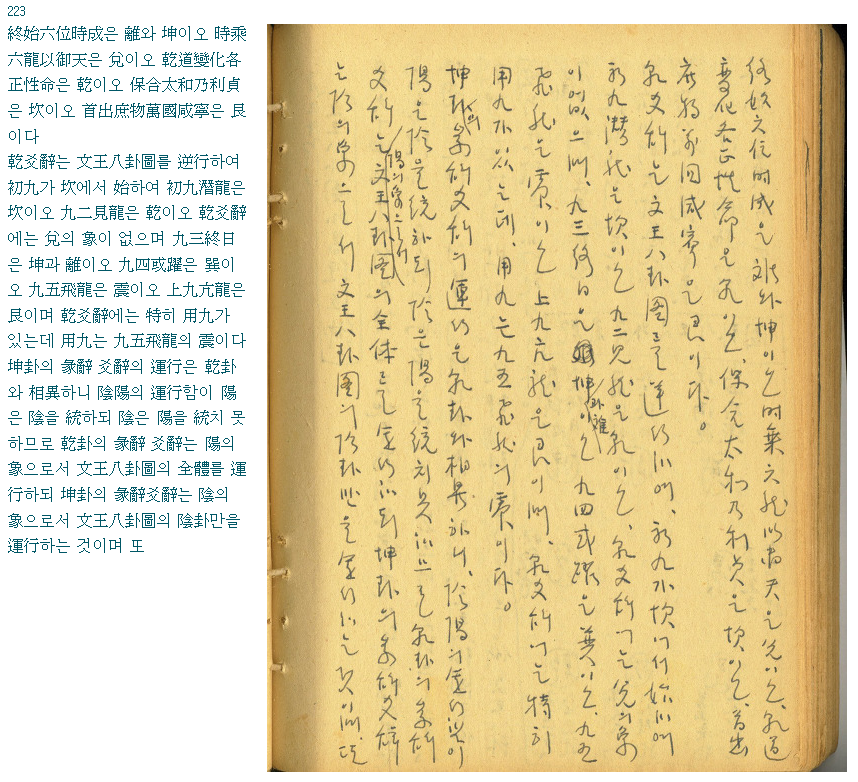 223
終始六位時成은 離와 坤이오 時乘
六龍以御天은 兌이오 乾道變化各
正性命은 乾이오 保合太和乃利貞
은 坎이오 首出庶物萬國咸寧은 艮
이다
乾爻辭는 文王八卦圖를 逆行하여
初九가 坎에서 始하여 初九潛龍은
坎이오 九二見龍은 乾이오 乾爻辭
에는 兌의 象이 없으며 九三終日
은 坤과 離이오 九四或躍은 巽이
오 九五飛龍은 震이오 上九亢龍은
艮이며 乾爻辭에는 特히 用九가
있는데 用九는 九五飛龍의 震이다
坤卦의 彖辭 爻辭의 運行은 乾卦
와 相異하니 陰陽의 運行함이 陽
은 陰을 統하되 陰은 陽을 統치 못
하므로 乾卦의 彖辭 爻辭는 陽의
象으로서 文王八卦圖의 全體를 運
行하되 坤卦의 彖辭爻辭는 陰의
象으로서 文王八卦圖의 陰卦만을
運行하는 것이며 또
終始六位時成은 離와 坤이오 時乘六龍以御天은 兌이오, 乾道
變化各正性命은 乾이오, 保合太和乃利貞은 坎이오, 首出
庶物萬国咸寧은 艮이다。
乾爻辭는 文王八卦圖를 逆行하며, 初九가 坎에서 始하며
初九潛龍은 坎이오 九二見龍은 乾이오, 乾爻辭에는 兌의 象
이 없으며, 九三終日은 坤卦離이오 九四或躍은 巽이오, 九五
飛龍은 震이오 上九亢龍은 艮이며, 乾爻辭에는 特히
用九가 있는데, 用九는 九五飛龍의 震이다。
坤卦의 彖辭爻辭의 運行은 乾卦와 相異하니, 陰陽의 運行함이
陽은 陰을 統하되 陰은 陽을 統치 못하므로 乾卦의 彖辭
爻辭는 陽의 象으로서 文王八卦图의 全体를 運行하되 坤卦의 彖辭爻辭
는 陰의 象으로서 文王八卦图의 陰卦만을 運行하는 것이며, 또